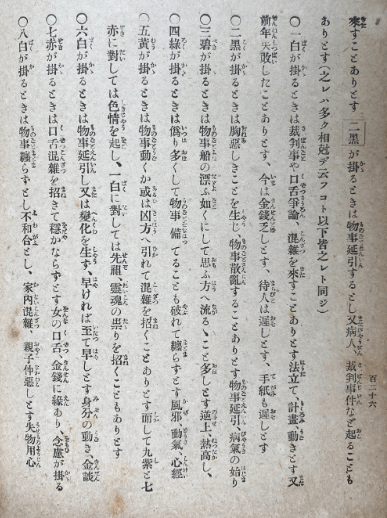 百二十六
來すことありとす 二黒が掛るときは物事延引するとし又病人、裁判事件など起ることも
ありとす(之レハ多ク相冠デ云フコト以下皆之レト同ジ)
○一白が掛るときは裁判事や口舌爭論、混雜を來すことありとす法立て、計畫、動きとす又
前年失敗したことありとす、今は金錢乏しとす、待人は遲しとす、手紙も遲しとす
○二黒が掛るときは胸惡しきことを生じ物事散亂することありとす物事延引、病氣の始り
○三碧が掛るときは物事船の漂ふ如くにして思ふ方へ流るゝこと多しとす逆上、熱高し、
○四綠が掛るときは僞り多くして物事備てることも破れて纏らずとす風邪、動氣、心經
○五黃が掛るときは物事動くか或は凶方へ引れて混雜を招くことありとす而して九紫と七
赤に對しては色情を起し、一白に對しては先祖、靈魂の祟りを招くこともありとす
○六白が掛るときは物事延引し又は變化を生ず、早ければ至て早しとす身分の動き、金談
○七赤が掛るときは口舌混雜を招きて穩かならずとす女の口舌、金錢に緣あり、念慮が掛る
○八白が掛るときは物事纏らずとし不和合とし、家內混雜、親子仲惡しとす失物用心